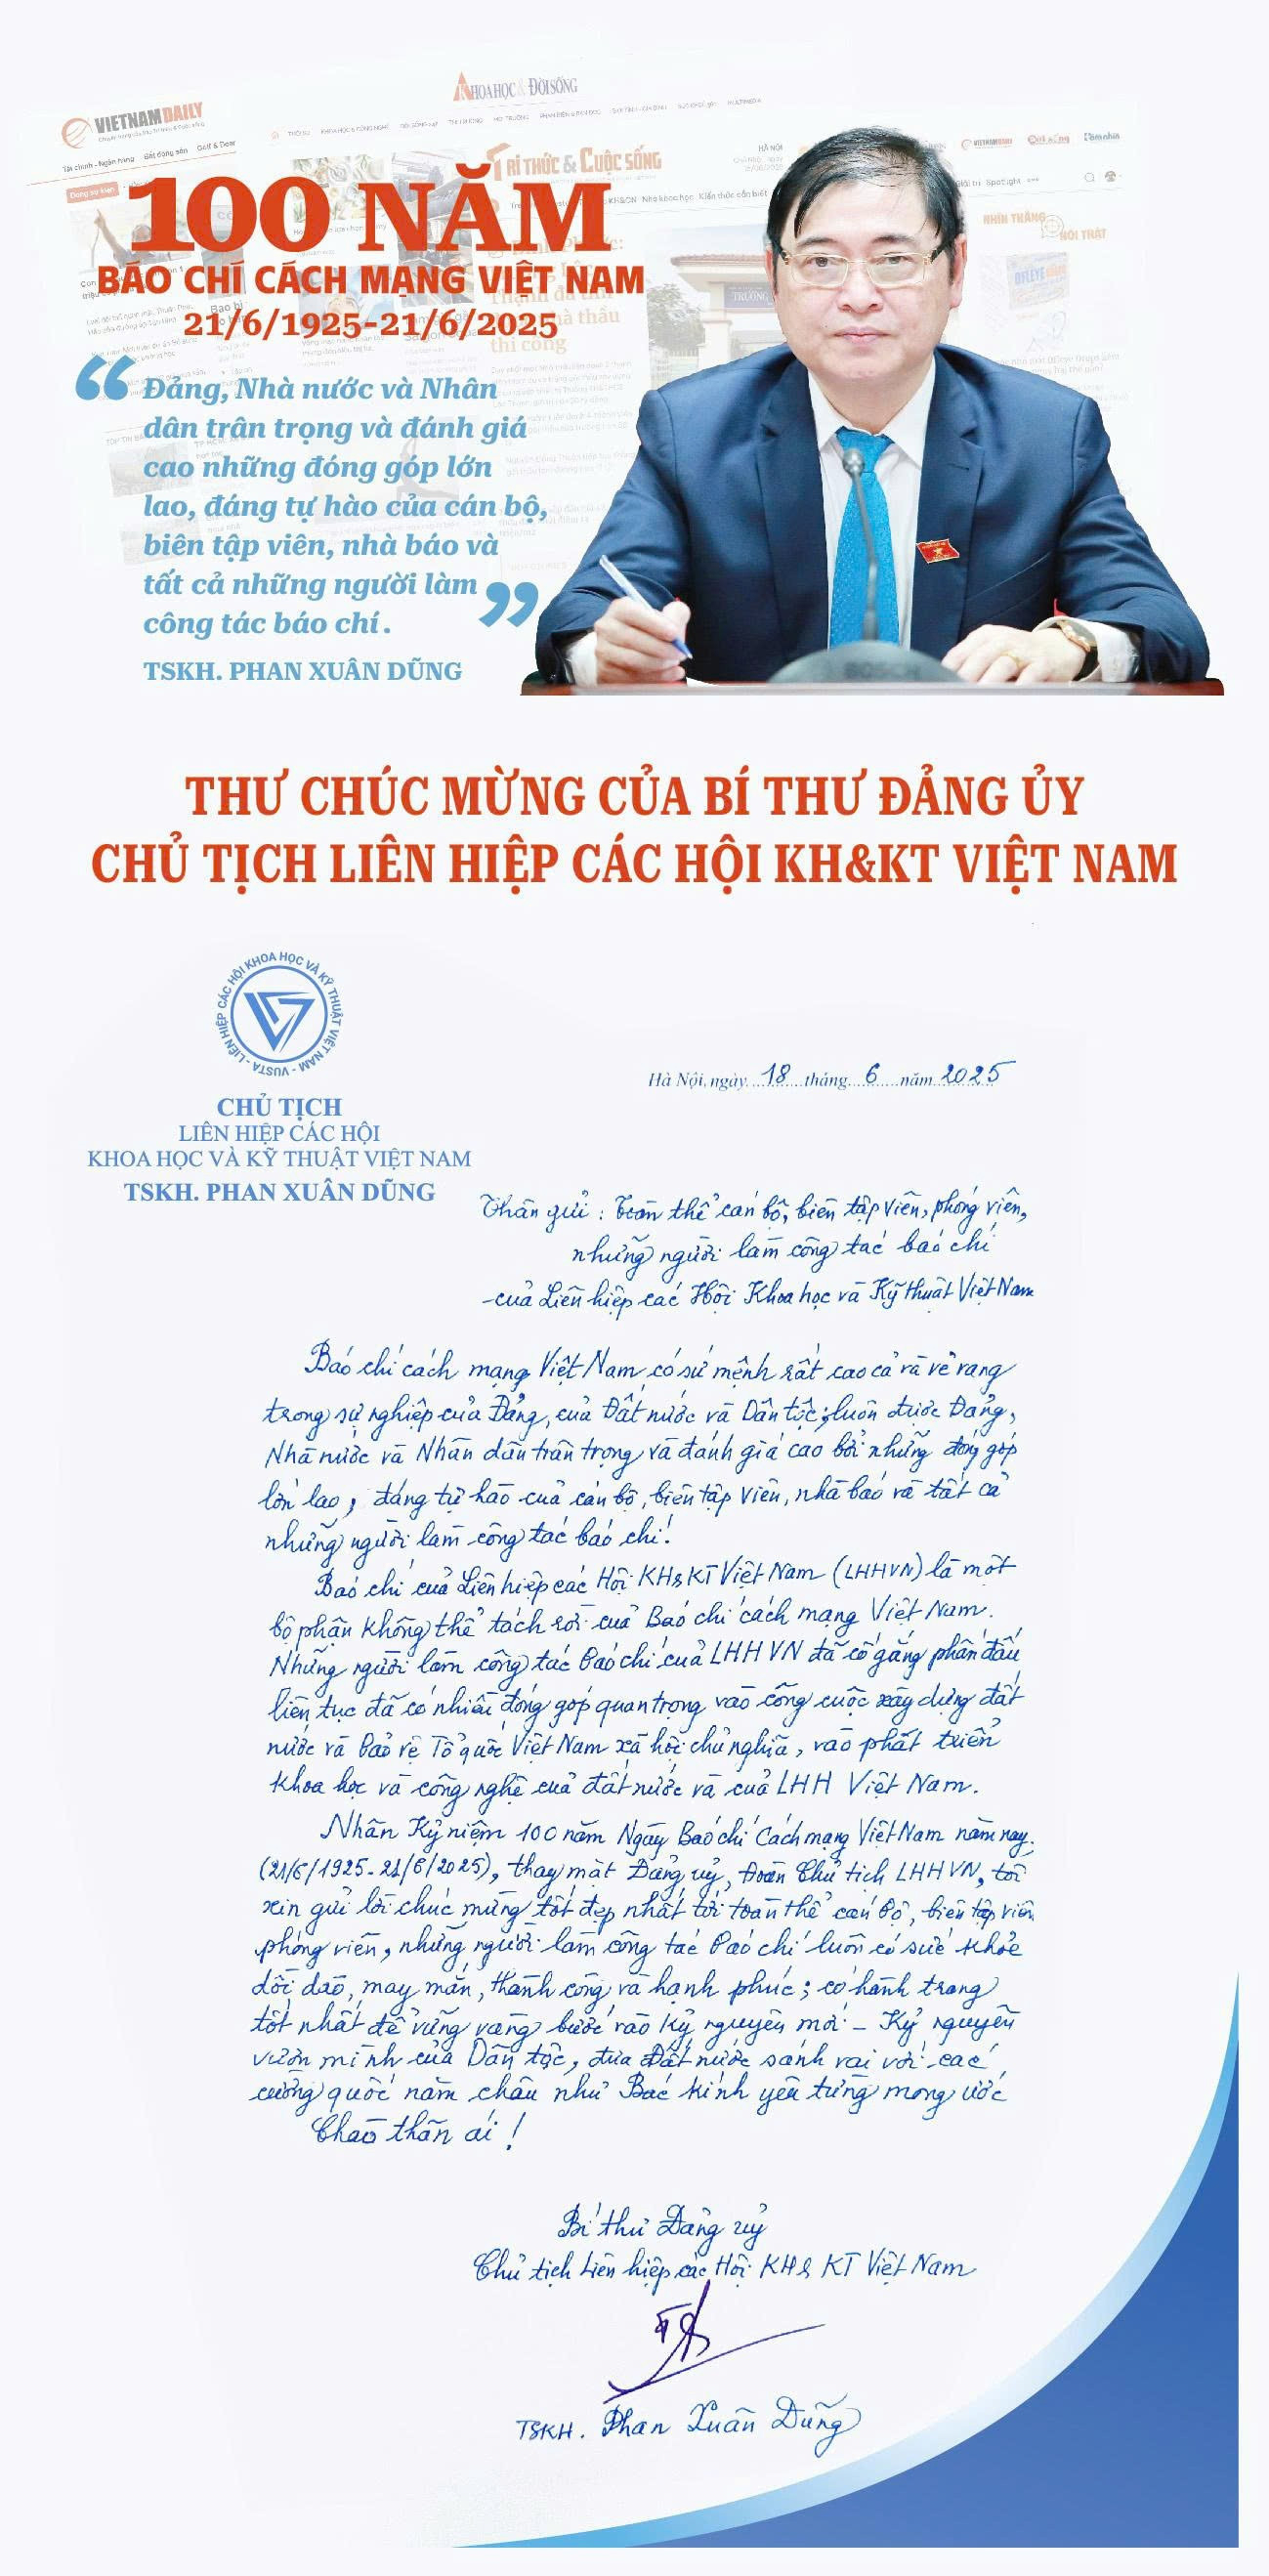 VIETNAMDAILY
KHOA HỌC & ĐỜI SỐNG
TRI THỨC & CUỘC SỐNG
Tài chính - Ngân hàng Bất động sản
HÀ NỘI
Spotlight
TRƯỜNG
100 NĂM
BÁO CHÍ CÁCH MẠNG VIỆT NAM
21/6/1925-21/6/2025
“Đảng, Nhà nước và Nhân
dân trân trọng và đánh giá
cao những đóng góp lớn
lao, đáng tự hào của cán bộ,
biên tập viên, nhà báo và
tất cả những người làm
công tác báo chí.”
TSKH. PHAN XUÂN DŨNG
THƯ CHÚC MỪNG CỦA BÍ THƯ ĐẢNG ỦY
CHỦ TỊCH LIÊN HIỆP CÁC HỘI KH&KT VIỆT NAM
LIÊN HIỆP CÁC HỘI KHOA HỌC VÀ KỸ THUẬT VIỆT NAM - VUSTA -
Hà Nội, ngày 18 tháng 6 năm 2025
CHỦ TỊCH
LIÊN HIỆP CÁC HỘI
KHOA HỌC VÀ KỸ THUẬT VIỆT NAM
TSKH. PHAN XUÂN DŨNG
Thân gửi: Toàn thể cán bộ, biên tập viên, phóng viên,
những người làm công tác báo chí
của Liên hiệp các Hội Khoa học và Kỹ thuật Việt Nam
Báo chí cách mạng Việt Nam có sứ mệnh rất cao cả và vẻ vang
trong sự nghiệp của Đảng, của Đất nước và Dân tộc; luôn được Đảng,
Nhà nước và Nhân dân trân trọng và đánh giá cao bởi những đóng góp
lớn lao, đáng tự hào của cán bộ, biên tập viên, nhà báo và tất cả
những người làm công tác báo chí!
Báo chí của Liên hiệp các Hội KH&KT Việt Nam (LHHVN) là một
bộ phận không thể tách rời của Báo chí cách mạng Việt Nam.
Những người làm công tác báo chí của LHHVN đã cố gắng phấn đấu
liên tục đã có nhiều đóng góp quan trọng vào công cuộc xây dựng đất
nước và bảo vệ Tổ quốc Việt Nam xã hội chủ nghĩa, vào phát triển
khoa học và công nghệ của đất nước và của LHH Việt Nam.
Nhân Kỷ niệm 100 năm Ngày Báo chí Cách mạng Việt Nam năm nay
(21/6/1925-21/6/2025), thay mặt Đảng uỷ, Đoàn Chủ tịch LHHVN, tôi
xin gửi lời chúc mừng tốt đẹp nhất tới toàn thể cán bộ, biên tập viên
phóng viên, những người làm công tác báo chí luôn có sức khỏe
dồi dào, may mắn, thành công và hạnh phúc; có hành trang
tốt nhất để vững vàng bước vào kỷ nguyên mới - Kỷ nguyên
vươn mình của Dân tộc, đưa Đất nước sánh vai với các
cường quốc năm châu như Bác kính yêu từng mong ước
Chào thân ái!
Bí thư Đảng uỷ
Chủ tịch Liên hiệp các Hội KH& KT Việt Nam
TSKH. Phan Xuân Dũng